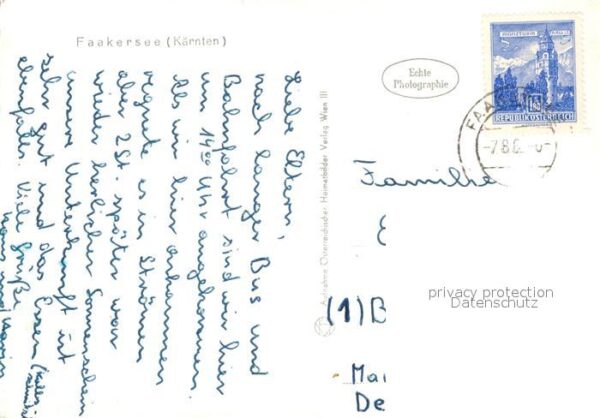 Faakersee (Kärnten)
Liebe Eltern,
nach langer Bus und
Bahnfahrt sind wir hier
um 14°° Uhr angekommen.
Als wir hier ankamen
regnete es in Strömen
aber 2 St. später war
wieder herlicher Sonnenschein
unsere Unterkunft ist
sehr gut und das Essen
ebenfalls. Viele Grüße
Echte
Photographie
Aufnahme Österreichischer Heimatbilder Verlag Wien III
REPUBLIK ÖSTERREICH
FAA
Familie
(1) B
Mai
De
privacy protection
Datenschutz